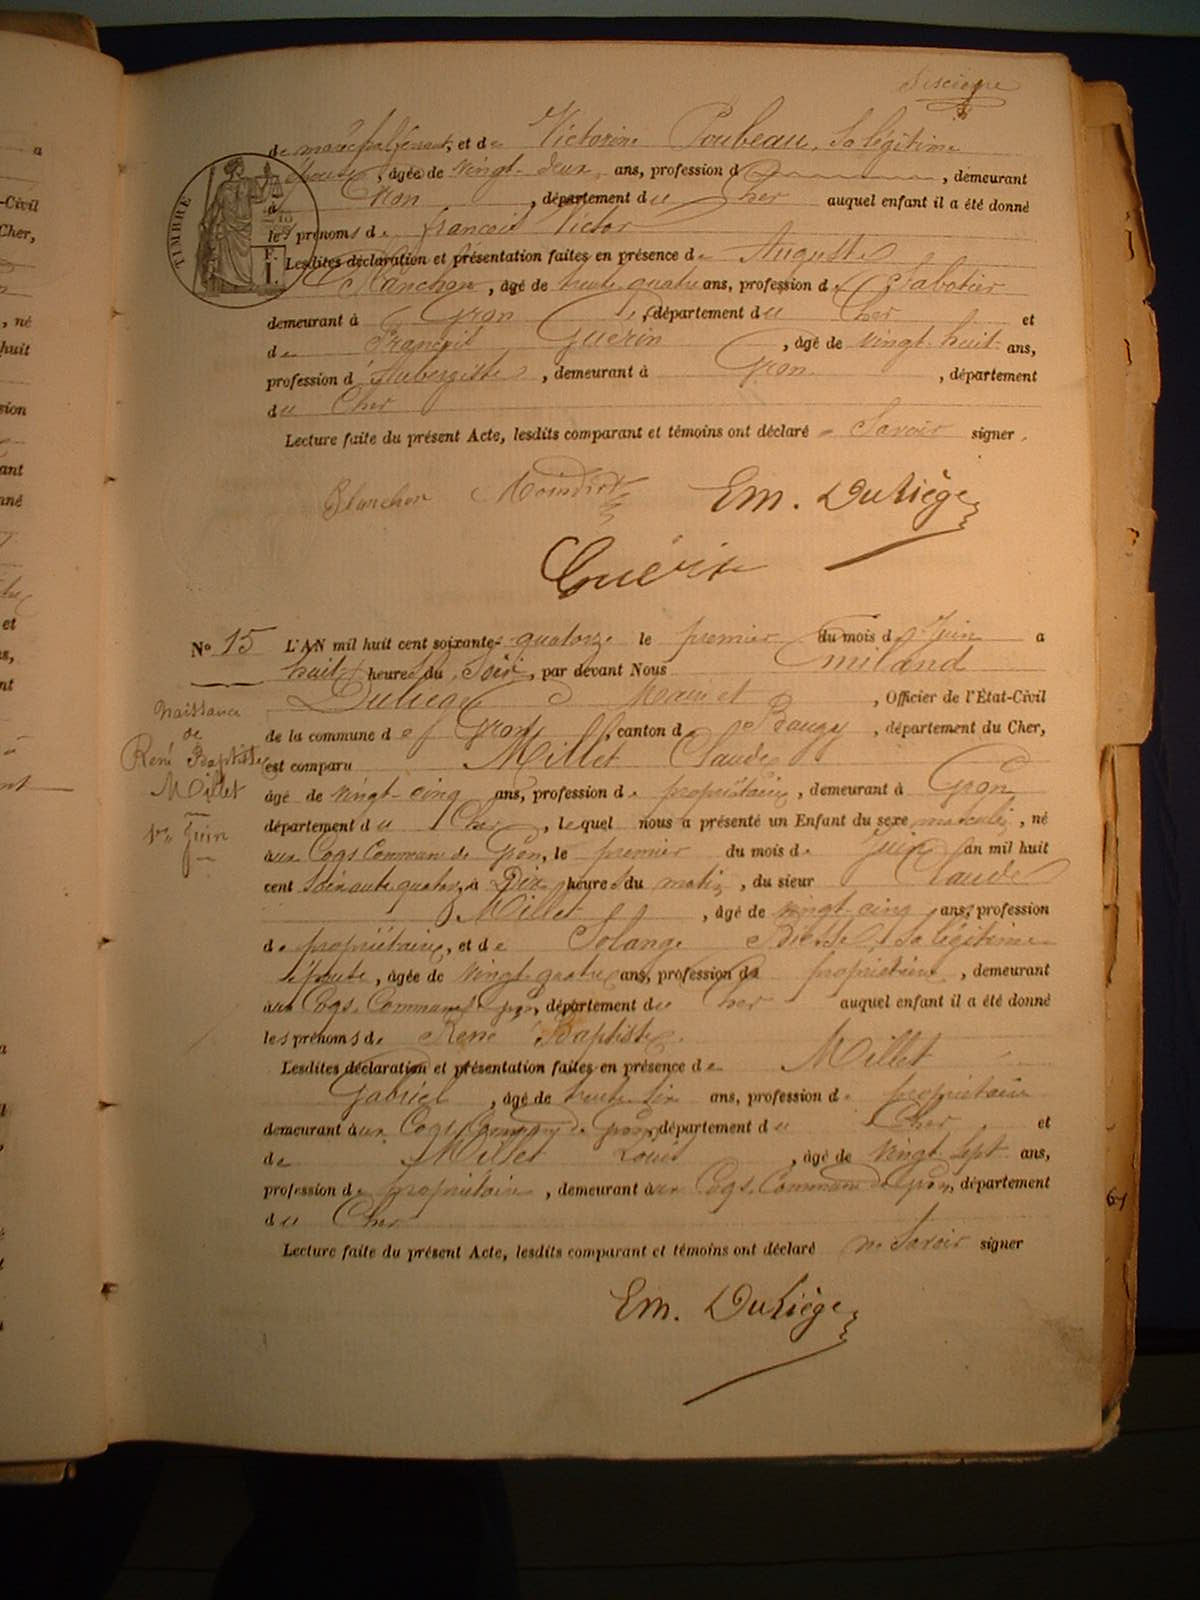 Sixième
de maréchal ferrant, et de Victorine Poubeau, Sa légitime
épouse, âgée de vingt-deux ans, profession d , demeurant
à Gron, département du Cher auquel enfant il a été donné
les prénoms de françois Victor
Lesdites déclaration et présentation faites en présence de Auguste
Blanchon, âgé de trente quatre ans, profession de Sabotier
demeurant à Gron, département du Cher et
de François Guérin, âgé de vingt-huit ans,
profession d'Aubergiste, demeurant à Gron, département
du Cher
Lecture faite du présent Acte, lesdits comparant et témoins ont déclaré Savoir signer.
Blanchon Em. Duliège
Guérin
TIMBRE
No 15 L'AN mil huit cent soixante-quatorze le premier du mois de Juin a
huit heures du Soir, par devant Nous Emiland
Duliège Maire et, Officier de l'État-Civil
de la commune de Gron, canton de Baugy, département du Cher,
est comparu Millet Claude
âgé de vingt-cinq ans, profession de propriétaire, demeurant à Gron
département du Cher, lequel nous a présenté un Enfant du sexe masculin, né
aux Cogs Commune de Gron, le premier du mois de Juin an mil huit
cent soixante quatorze à Dix heures du matin, du sieur Claude
Millet, âgé de vingt-cinq ans, profession
de propriétaire, et de Solange, Sa légitime
épouse, âgée de vingt quatre ans, profession de propriétaire, demeurant
aux Cogs, Commune de Gron, département du Cher auquel enfant il a été donné
les prénoms de René Baptiste
Lesdites déclaration et présentation faites en présence de Millet
Gabriel, âgé de trente six ans, profession de propriétaire
demeurant aux Cogs Commune de Gron, département du Cher et
de Millet Louis, âgé de vingt sept ans,
profession de propriétaire, demeurant aux Cogs, Commune de Gron, département
du Cher
Lecture faite du présent Acte, lesdits comparant et témoins ont déclaré ne Savoir signer
Em. Duliège
Naissance
de
René Baptiste
Millet
1er Juin